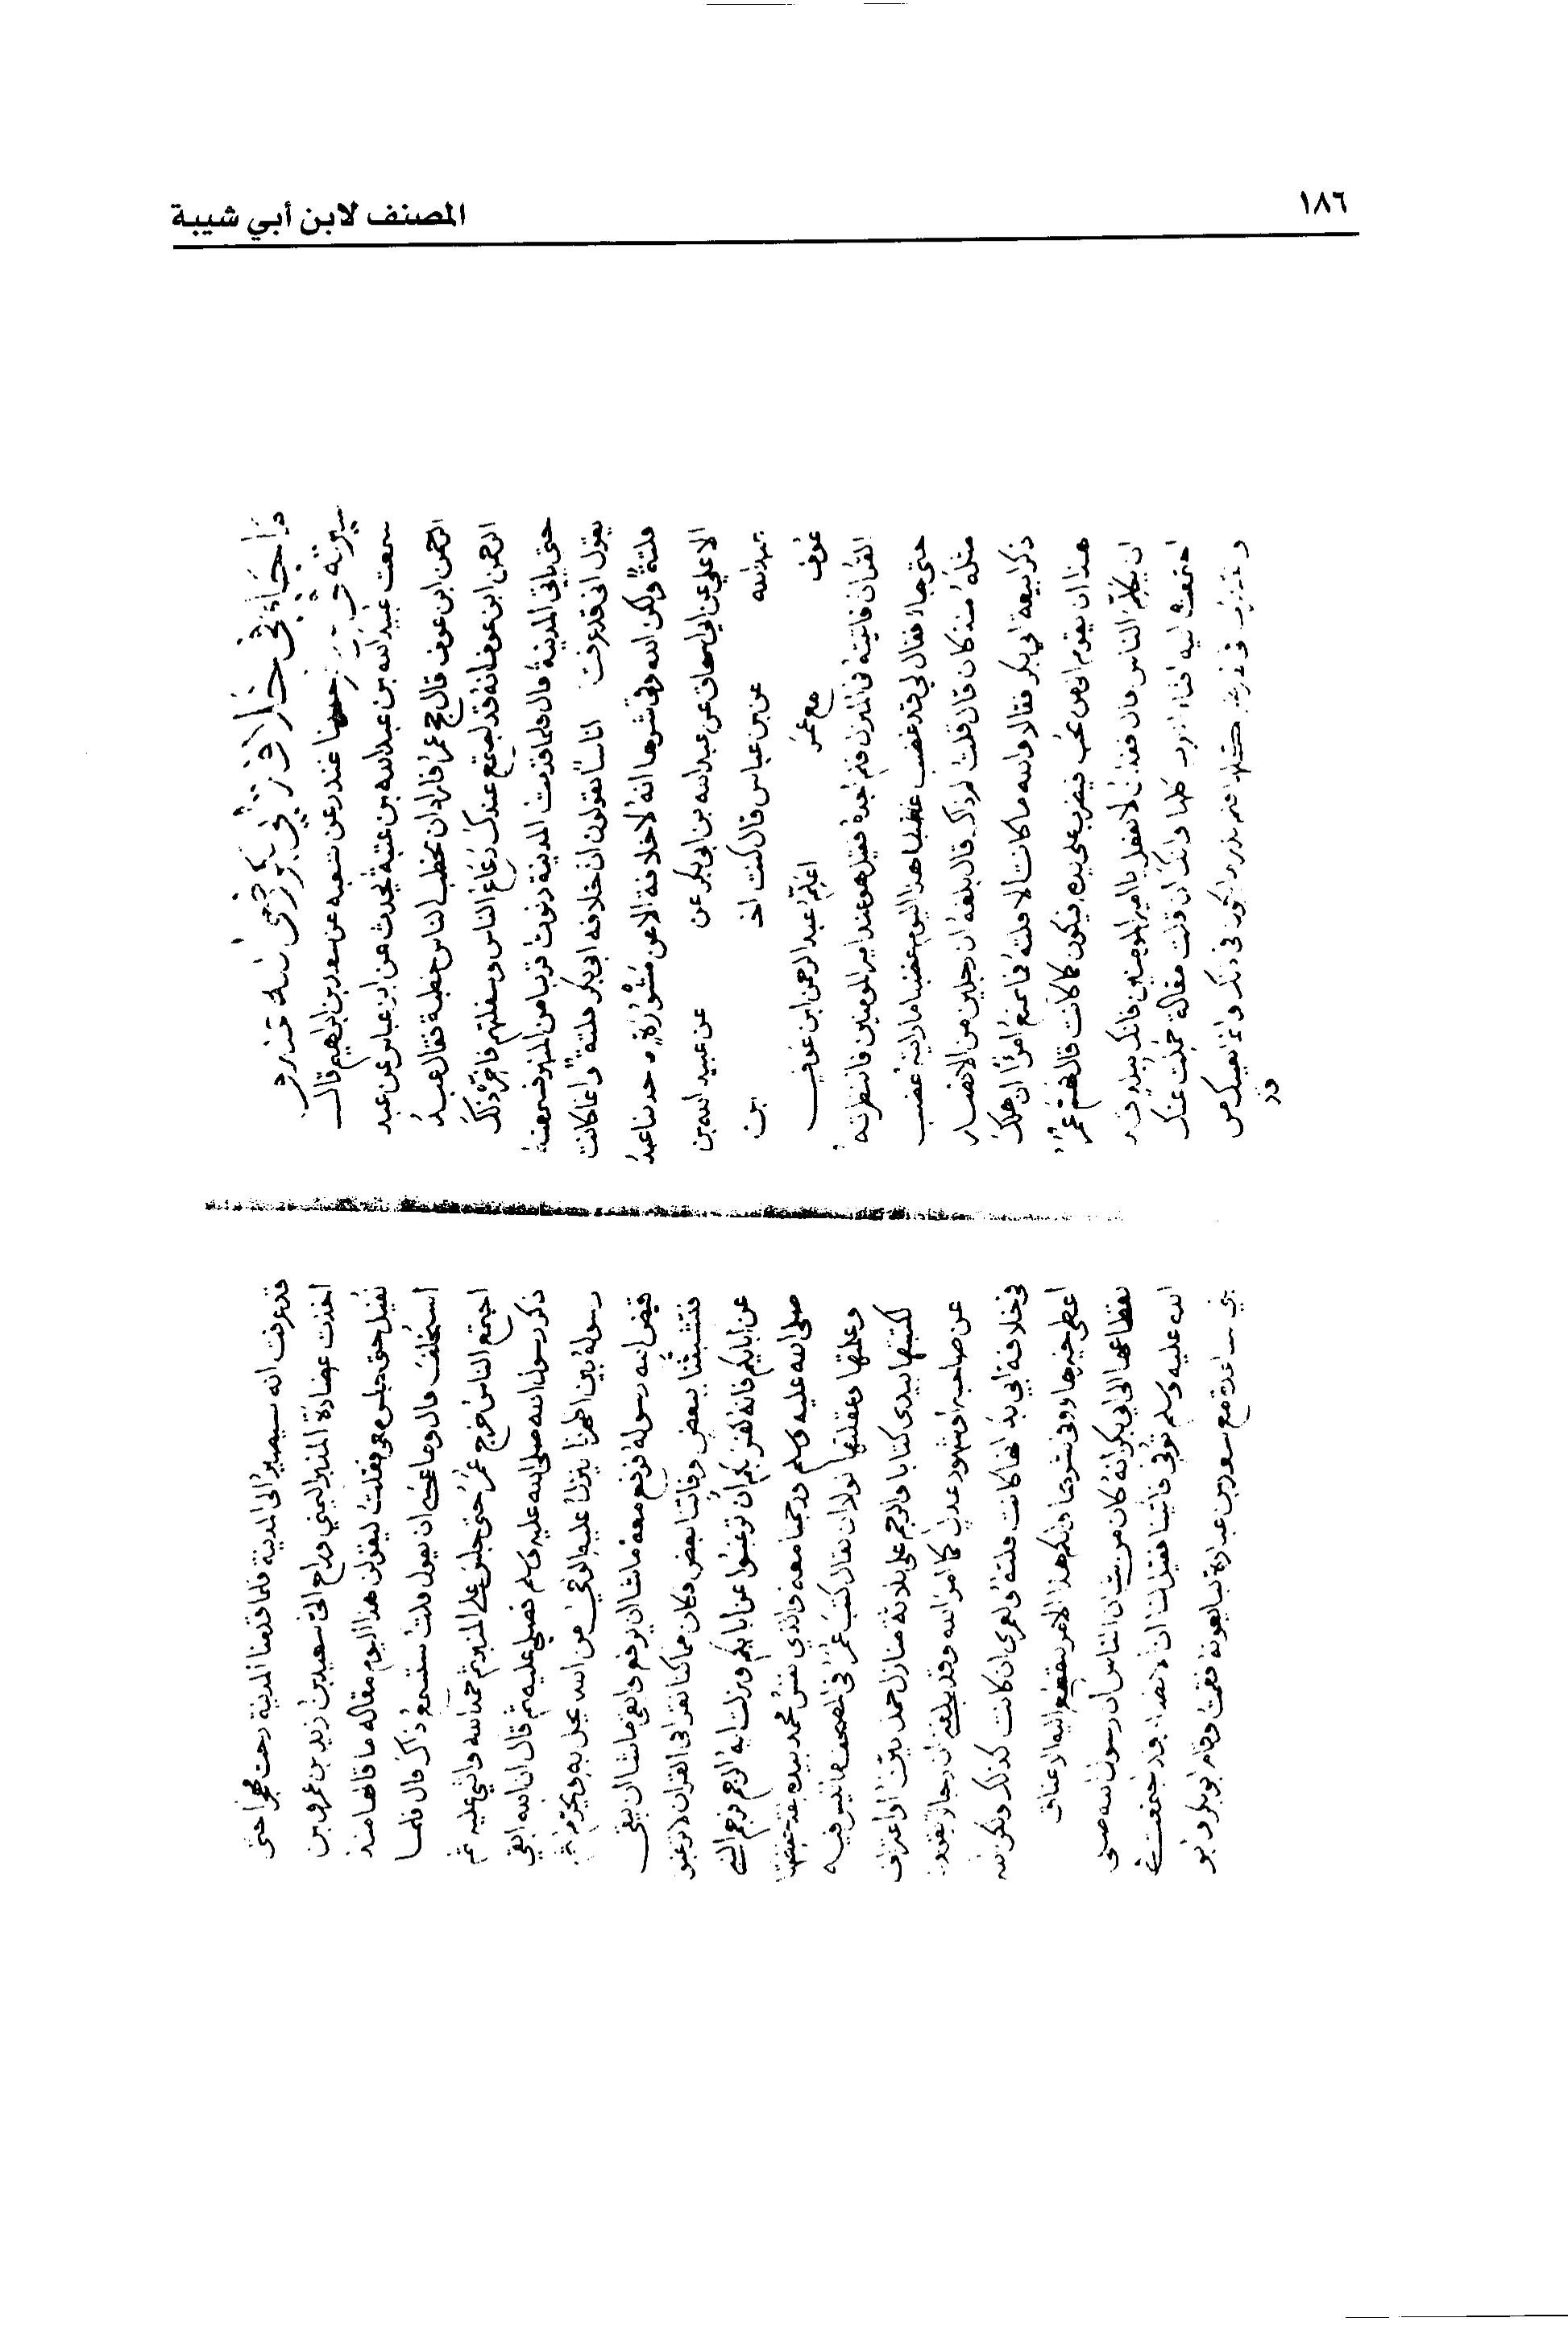 ١٨٦
المصنف لابن أبي شيبة
ما جاء في خلافة أبي بكر رضي الله عنه و
سيرته في حدثنا غندر عن شعبه عن سعد بن ابراهيم قال
سمعت عبيد الله بن عبد الله بن عتبة يحدث عن ابن عباس عن عبد
الرحمن ابن عوف قال حج عمر فاراد ان يخطب الناس خطبة فقال عبد
الرحمن ابن عوف انه قد اجتمع عندك رعاع الناس وسفلتهم فاخر ذلك
حتى ياتي المدينة قال فلما قدمت المدينة دنوت قريبا من المنبر فسمعته
يقول انى قد عرفت اناسا يقولون ان خلافه ابى بكر فلتة وانما كانت
فلتة ولكن الله وقى شرها انه لا خلافة الا عن مشورة حدثنا عبد
الاعلي عن ابي اسحاق عن عبد الله بن ابى بكر عن
عبد الله عن بن عباس قال كنت اخـ بن
عوف مع عمر اعلم عبد الرحمن ابن عوف
القران فاتيته فى المنزل فلم اجده فقيل هو عند امير المومنين فانتظرته
حتى جاء فقال لي قد غضب هذا اليوم غضبا ما رايته غضب
مثله منذ كان قال قلت لم ذاك قال بلغه ان رجلين من الانصار
ذكرا بيعة ابي بكر فقالا والله ما كانت الا فلتة فما يمنع امرؤا ان هلك
هذا ان يقوم الى من يحب فيضرب على يده فيكون كما كانت قال فهم عمر
ان يكلم الناس قال فقلت لا تفعل يا امير المومنين فانك ببلد قد
اجتمعت اليه افناء العرب كلها وانك ان قلت مقالة حملت عنك
قد عرفت انه سيصير الى المدينة فلما قدمنا المدينة رحت مهجرا حتى
اخذت عضادة المنبر اليمنى وراح الي سعيد بن زيد بن عمرو بن
نفيل حتى جلس معي فقلت ليقولن هذا اليوم مقاله ما قالها منذ
استخلف قال وما عسى ان يقول قلت ستسمع ذاك قال فلما
اجتمع الناس خرج عمر حتى جلس على المنبر ثم حمد الله واثنى عليه ثم
ذكر رسول الله صلى الله عليه وسلم فصلى عليه ثم قال ان الله ابقى
رسوله بين اظهرنا ينزل عليه الوحي من الله يحل به ويحرم ثم
قبض الله رسوله فرفع معه ما شا ان يرفع وابقى ما شا ان يبقى
فتشبثنا ببعض وفاتنا بعض فكان مما كنا نقرا فى القران لا ترغبو
عن ابايكم فانه كفر بكم ان ترغبوا عن ابايكم ونزلت اية الرجم فرجم النبي
صلى الله عليه وسلم ورجمنا معه والذي نفس محمد بيده لقد حفظتها
وعلمتها وعقلتها لولا ان يقال كتب عمر فى المصحف ما ليس فيه
لكتبتها بيدى كتابا والرجم على ثلاثة منازل حمل بين او اعتراف
عن صاحبه او شهود عدل كما امر الله وقد بلغني ان رجالا يقولون
فى خلافة ابي بكر انها كانت فلتة ولعمرى ان كانت كذلك ولكن الله
اعطى خيرها ووقى شرها وايكم هذا الذى تنقطع اليه الاعناق
كانقطاعها الى ابي بكر انه كان من شان الناس ان رسول الله صلى
الله عليه وسلم توفى فاتينا فقيل لنا ان الانصار قد اجتمعت في
بني ساعدة مع سعد بن عبادة يبايعونه فقمت وقام ابو بكر وابو